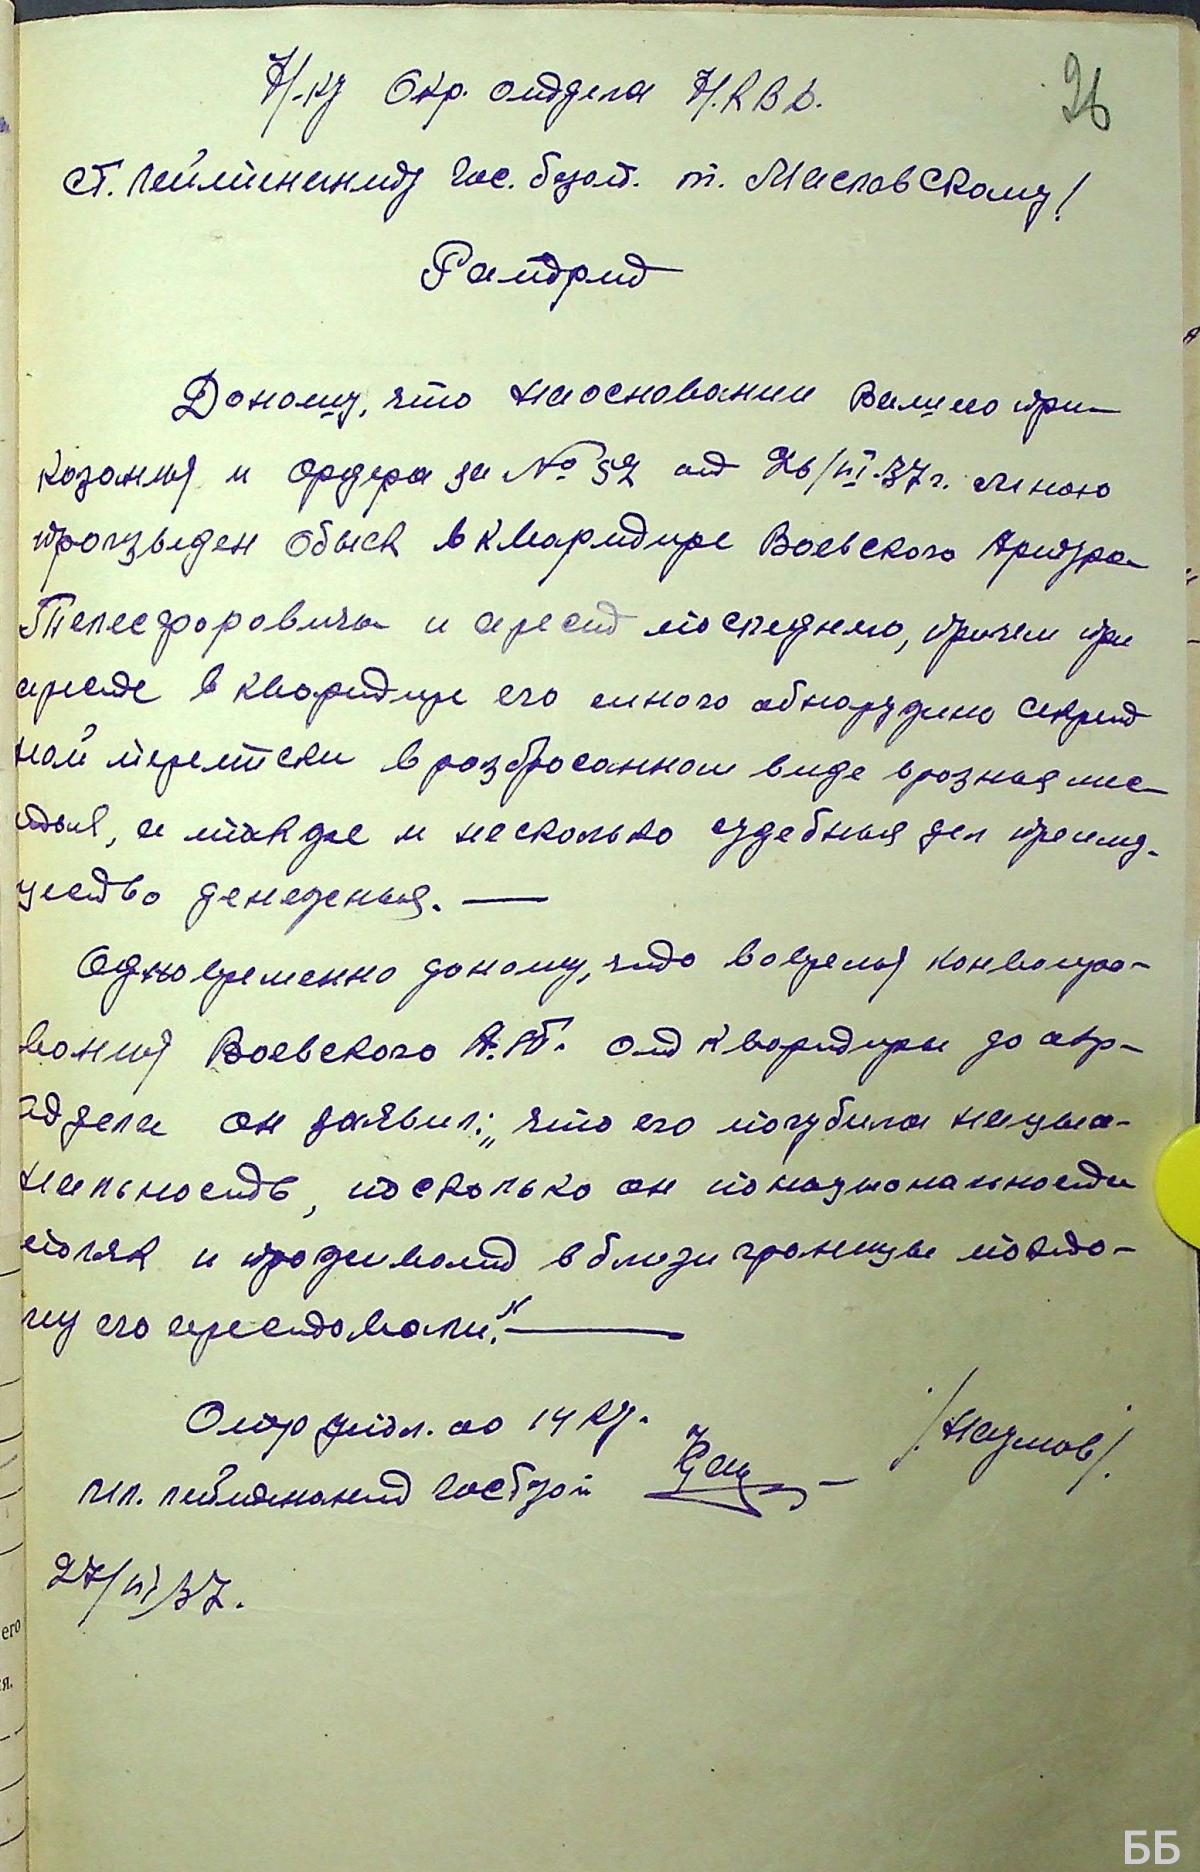 Н-ку Окр. отдела Н.К.В.Д.
26
ст. лейтенанту Гос. безоп. т. Масловскому!
Рапорт
Доношу, что на основании Вашего при-
казания и ордера за № 52 от 26/VI.37 г. мною
произведен обыск в квартире Воевского Артура
Телесфоровича и арест последнего, причем при
аресте в квартире его много обнаружено секрет
ной переписки в разбросанном виде в разных мес-
тах, а также и несколько судебных дел преиму-
щество денежных. —
Одновременно доношу, что вовремя конвоиро-
вания Воевского А.Т. от квартиры до окр-
отдела он заявил: „что его погубила нацио-
нальность, поскольку он по национальности
поляк и проживает вблизи границы поэто-
му его арестовали." —
Опер упол. 14 КП.
мл. лейтенант Госбезоп /Наумов/.
27/VI 37.
его
я.
ББ